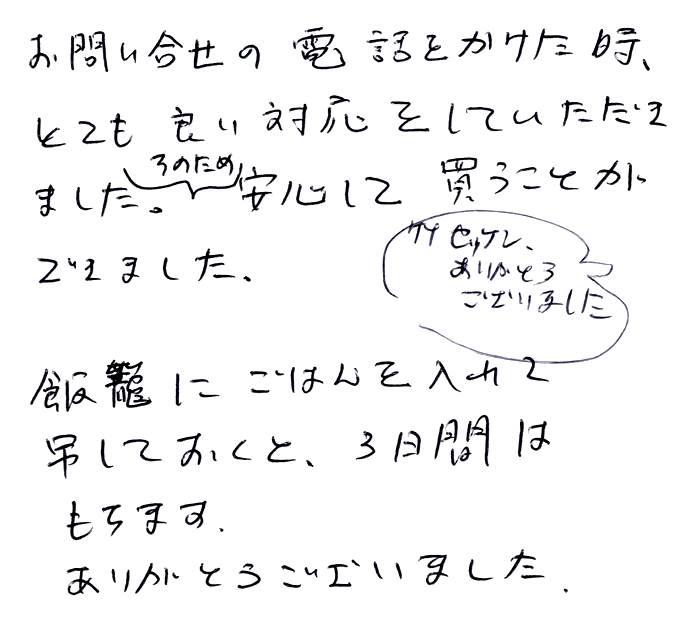 お問い合せの電話をかけた時、
とても良い対応をしていただき
ました。そのため安心して買うことが
できました。
ケイ セッケン、
ありがとう
ございました
飯籠にごはんを入れて
吊しておくと、3日間は
もちます.
ありがとうございました.